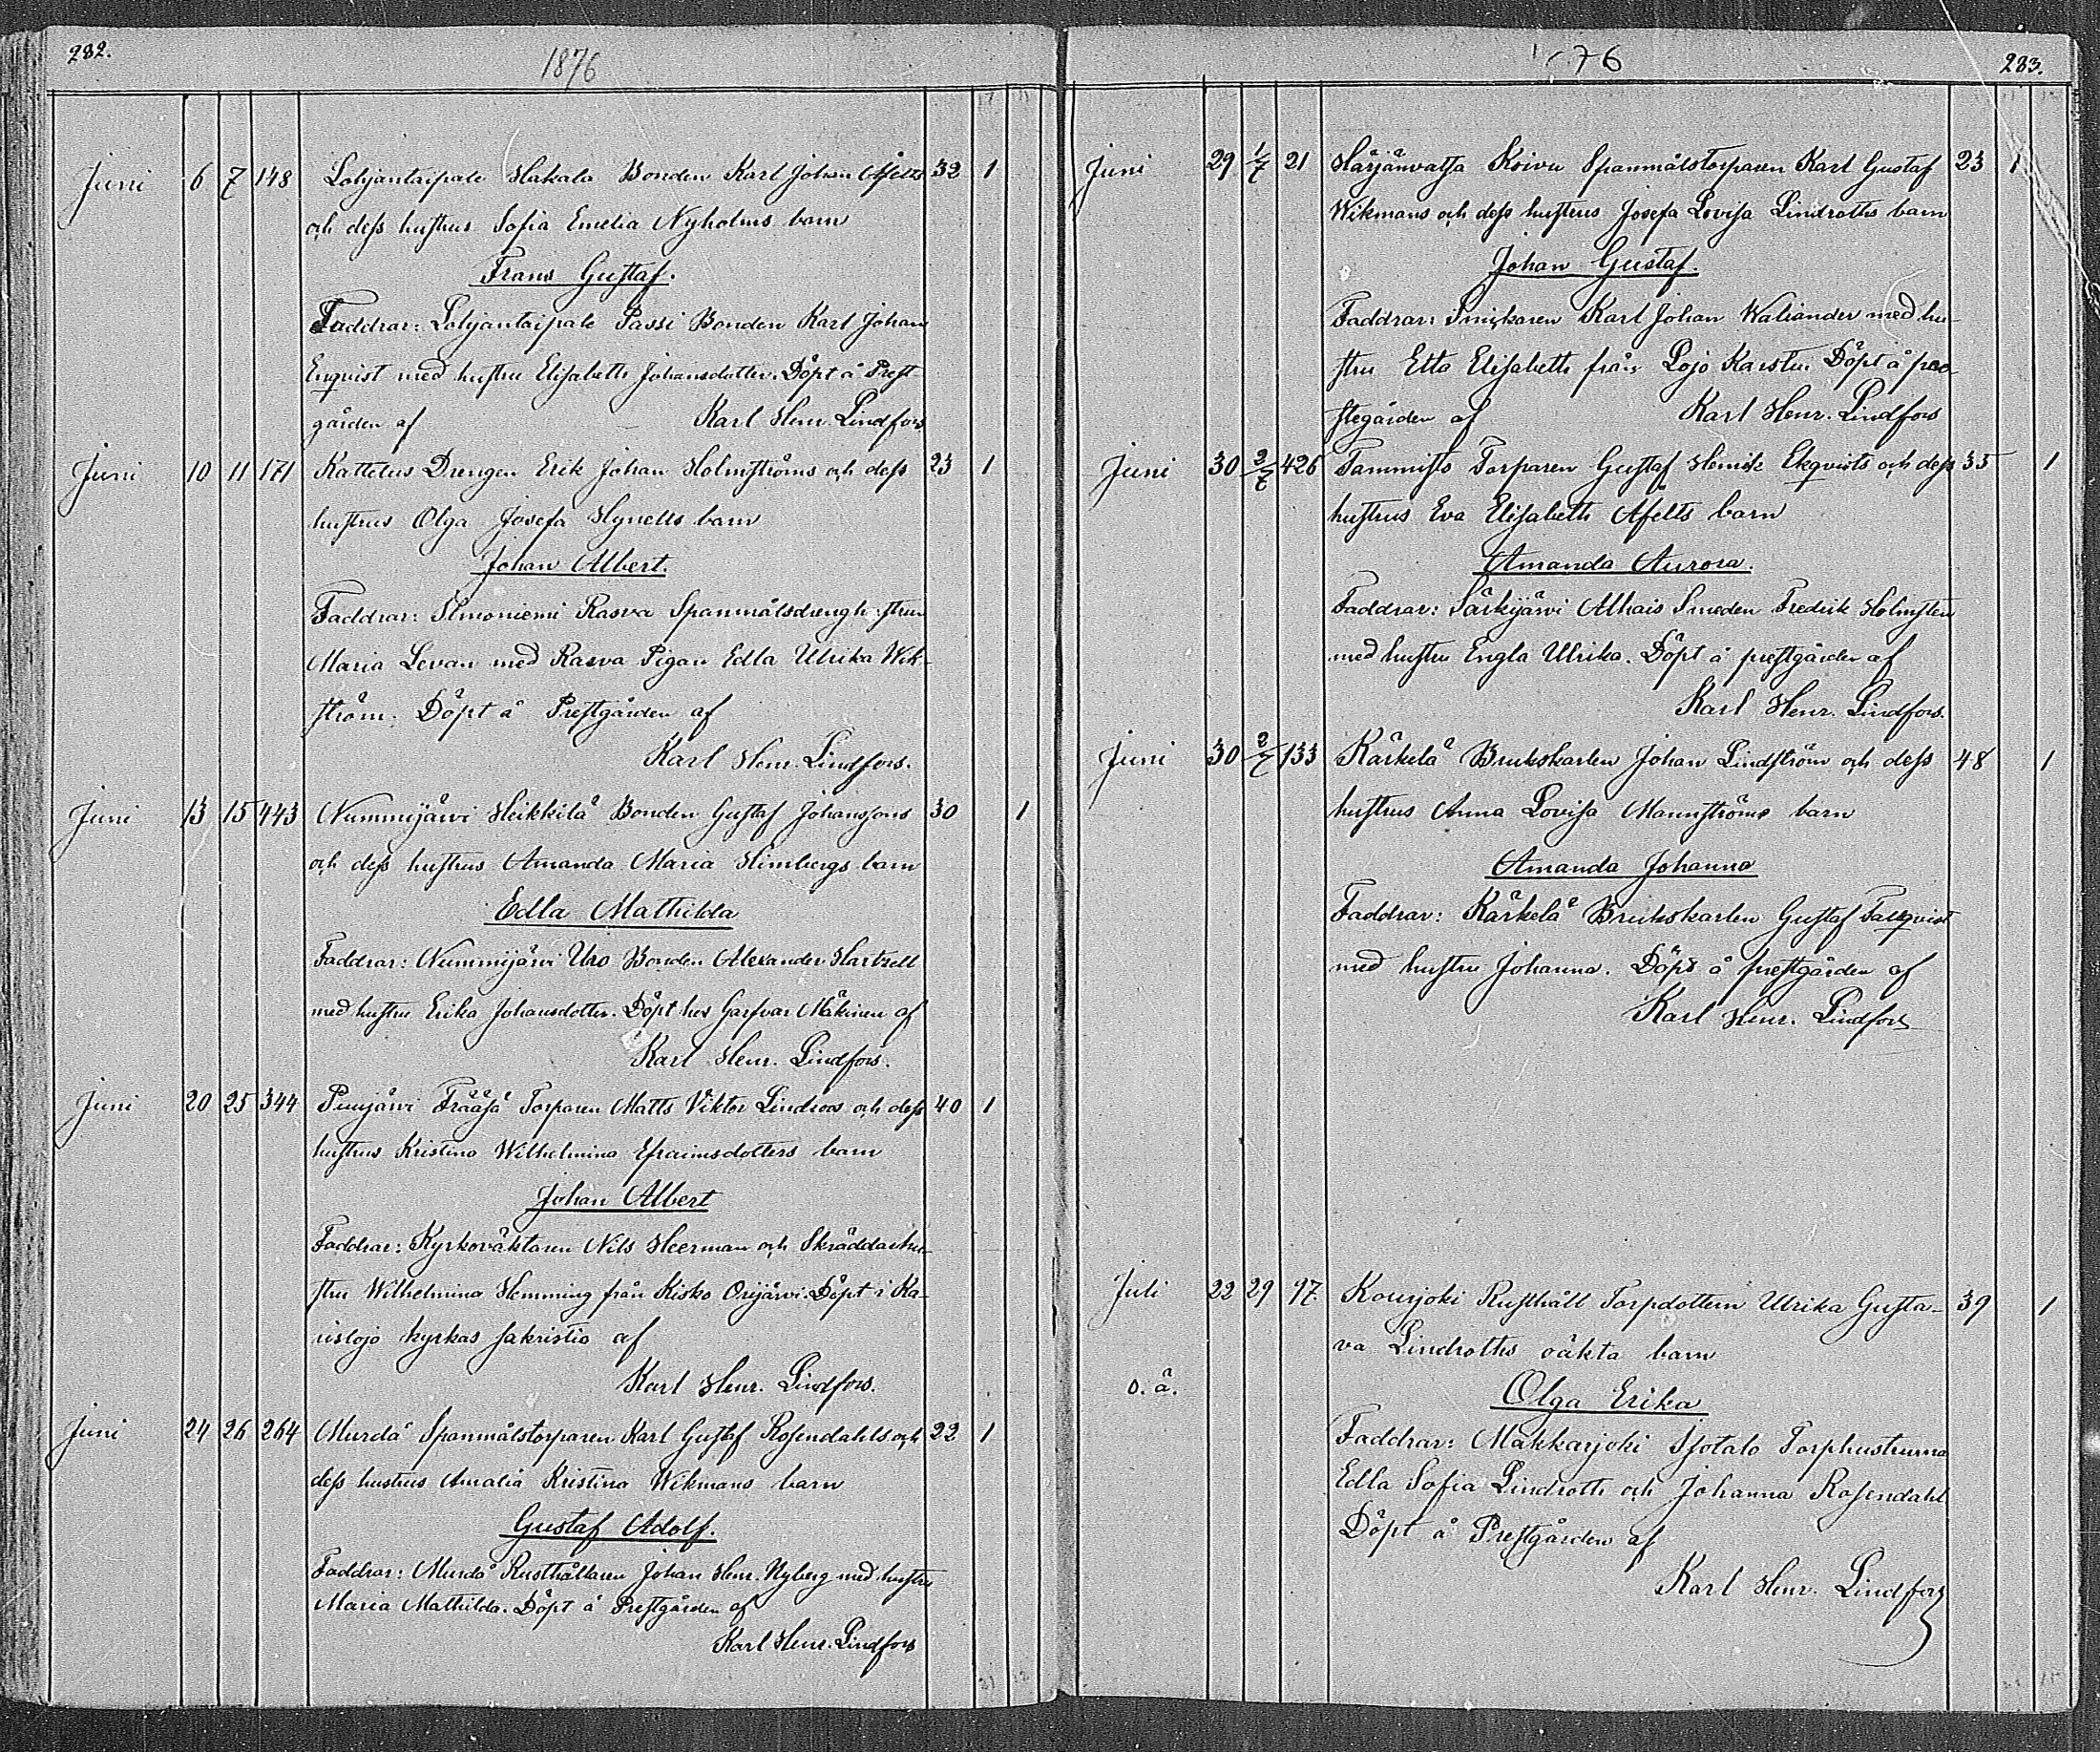 282.
1876
Juni 6 7 148 Lohjantaipale Hakala Bonden Karl Johan Afelts 32 1
och dess hustrus Sofia Emelia Nyholms barn
Frans Gustaf.
Faddrar: Lohjantaipale Passi Bonden Karl Johan
Enqvist med hustru Elisabeth Johansdotter. Döpt å Prest-
gården af Karl Henr. Lindfors
Juni 10 11 171 Kattelus Drengen Erik Johan Holmströms och dess 23 1
hustrus Olga Josefa Hynells barn
Johan Albert.
Faddrar: Ilmoniemi Rasva Spanmålsdrengh:strun
Maria Levan med Rasva Pigan Edla Ulrika Wik-
ström. Döpt å Prestgården af
Karl Henr. Lindfors.
Juni 13 15 443 Nummijärvi Heikkilä Bonden Gustaf Johanssons 30 1
och dess hustrus Amanda Maria Himbergs barn
Edla Mathilda
Faddrar: Nummijärvi Uro Bonden Alexander Hartzell
med hustru Erika Johansdotter. Döpt hos Garfvar Mäkinen af
Karl Henr. Lindfors.
Juni 20 25 344 Puujärvi Frääsä Torparen Matts Viktor Lindroos och dess 40 1
hustrus Kristina Wilhelmina Efraimsdotters barn
Johan Albert
Faddrar: Kyrkoväktaren Nils Heerman och Skräddarehu-
stru Wilhelmina Hemming från Kisko Orijärvi. Döpt i Ka-
rislojo kyrkas sakristia af
Karl Henr. Lindfors.
Juni 24 26 264 Murdå Spanmålstorparen Karl Gustaf Rosendahls och 22 1
dess hustrus Amalia Kristina Wikmans barn
Gustaf Adolf.
Faddrar: Murdå Rusthållaren Johan Henr. Nyberg med hustru
Maria Mathilda. Döpt å Prestgården af
Karl Henr. Lindfors
76
283.
Juni 29 1/7 21 Härjänvatsa Koivu Spanmålstorparen Karl Gustaf 23 1
Wikmans och dess hustrus Josefa Lovisa Lindroths barn
Johan Gustaf.
Faddrar: Snickaren Karl Johan Waliander med hu-
stru Etta Elisabeth från Lojo Karstu. Döpt å pre-
stegården af Karl Henr. Lindfors
Juni 30 2/7 426 Tammisto Torparen Gustaf Henrik Ekqvists och dess 35 1
hustrus Eva Elisabeth Afelts barn
Amanda Aurora.
Faddrar: Särkijärvi Alhais Smeden Fredrik Holmsten
med hustru Engla Ulrika. Döpt å prestgården af
Karl Henr. Lindfors.
Juni 30 2/7 133 Kärkelä Brukskarlen Johan Lindström och dess 48 1
hustrus Anna Lovisa Mannströms barn
Amanda Johanna
Faddrar: Kärkelä Brukskarlen Gustaf Tallqvist
med hustru Johanna. Döpt å prestgården af
Karl Henr. Lindfors
Juli 22 29 97 Kourjoki Rusthåll Torpdottern Ulrika Gusta- 39 1
va Lindroths oäkta barn
o. ä.
Olga Erika
Faddrar: Makkarjoki Isotalo Torphustrurna
Edla Sofia Lindroth och Johanna Rosendahl
Döpt å Prestgården af
Karl Henr. Lindfors